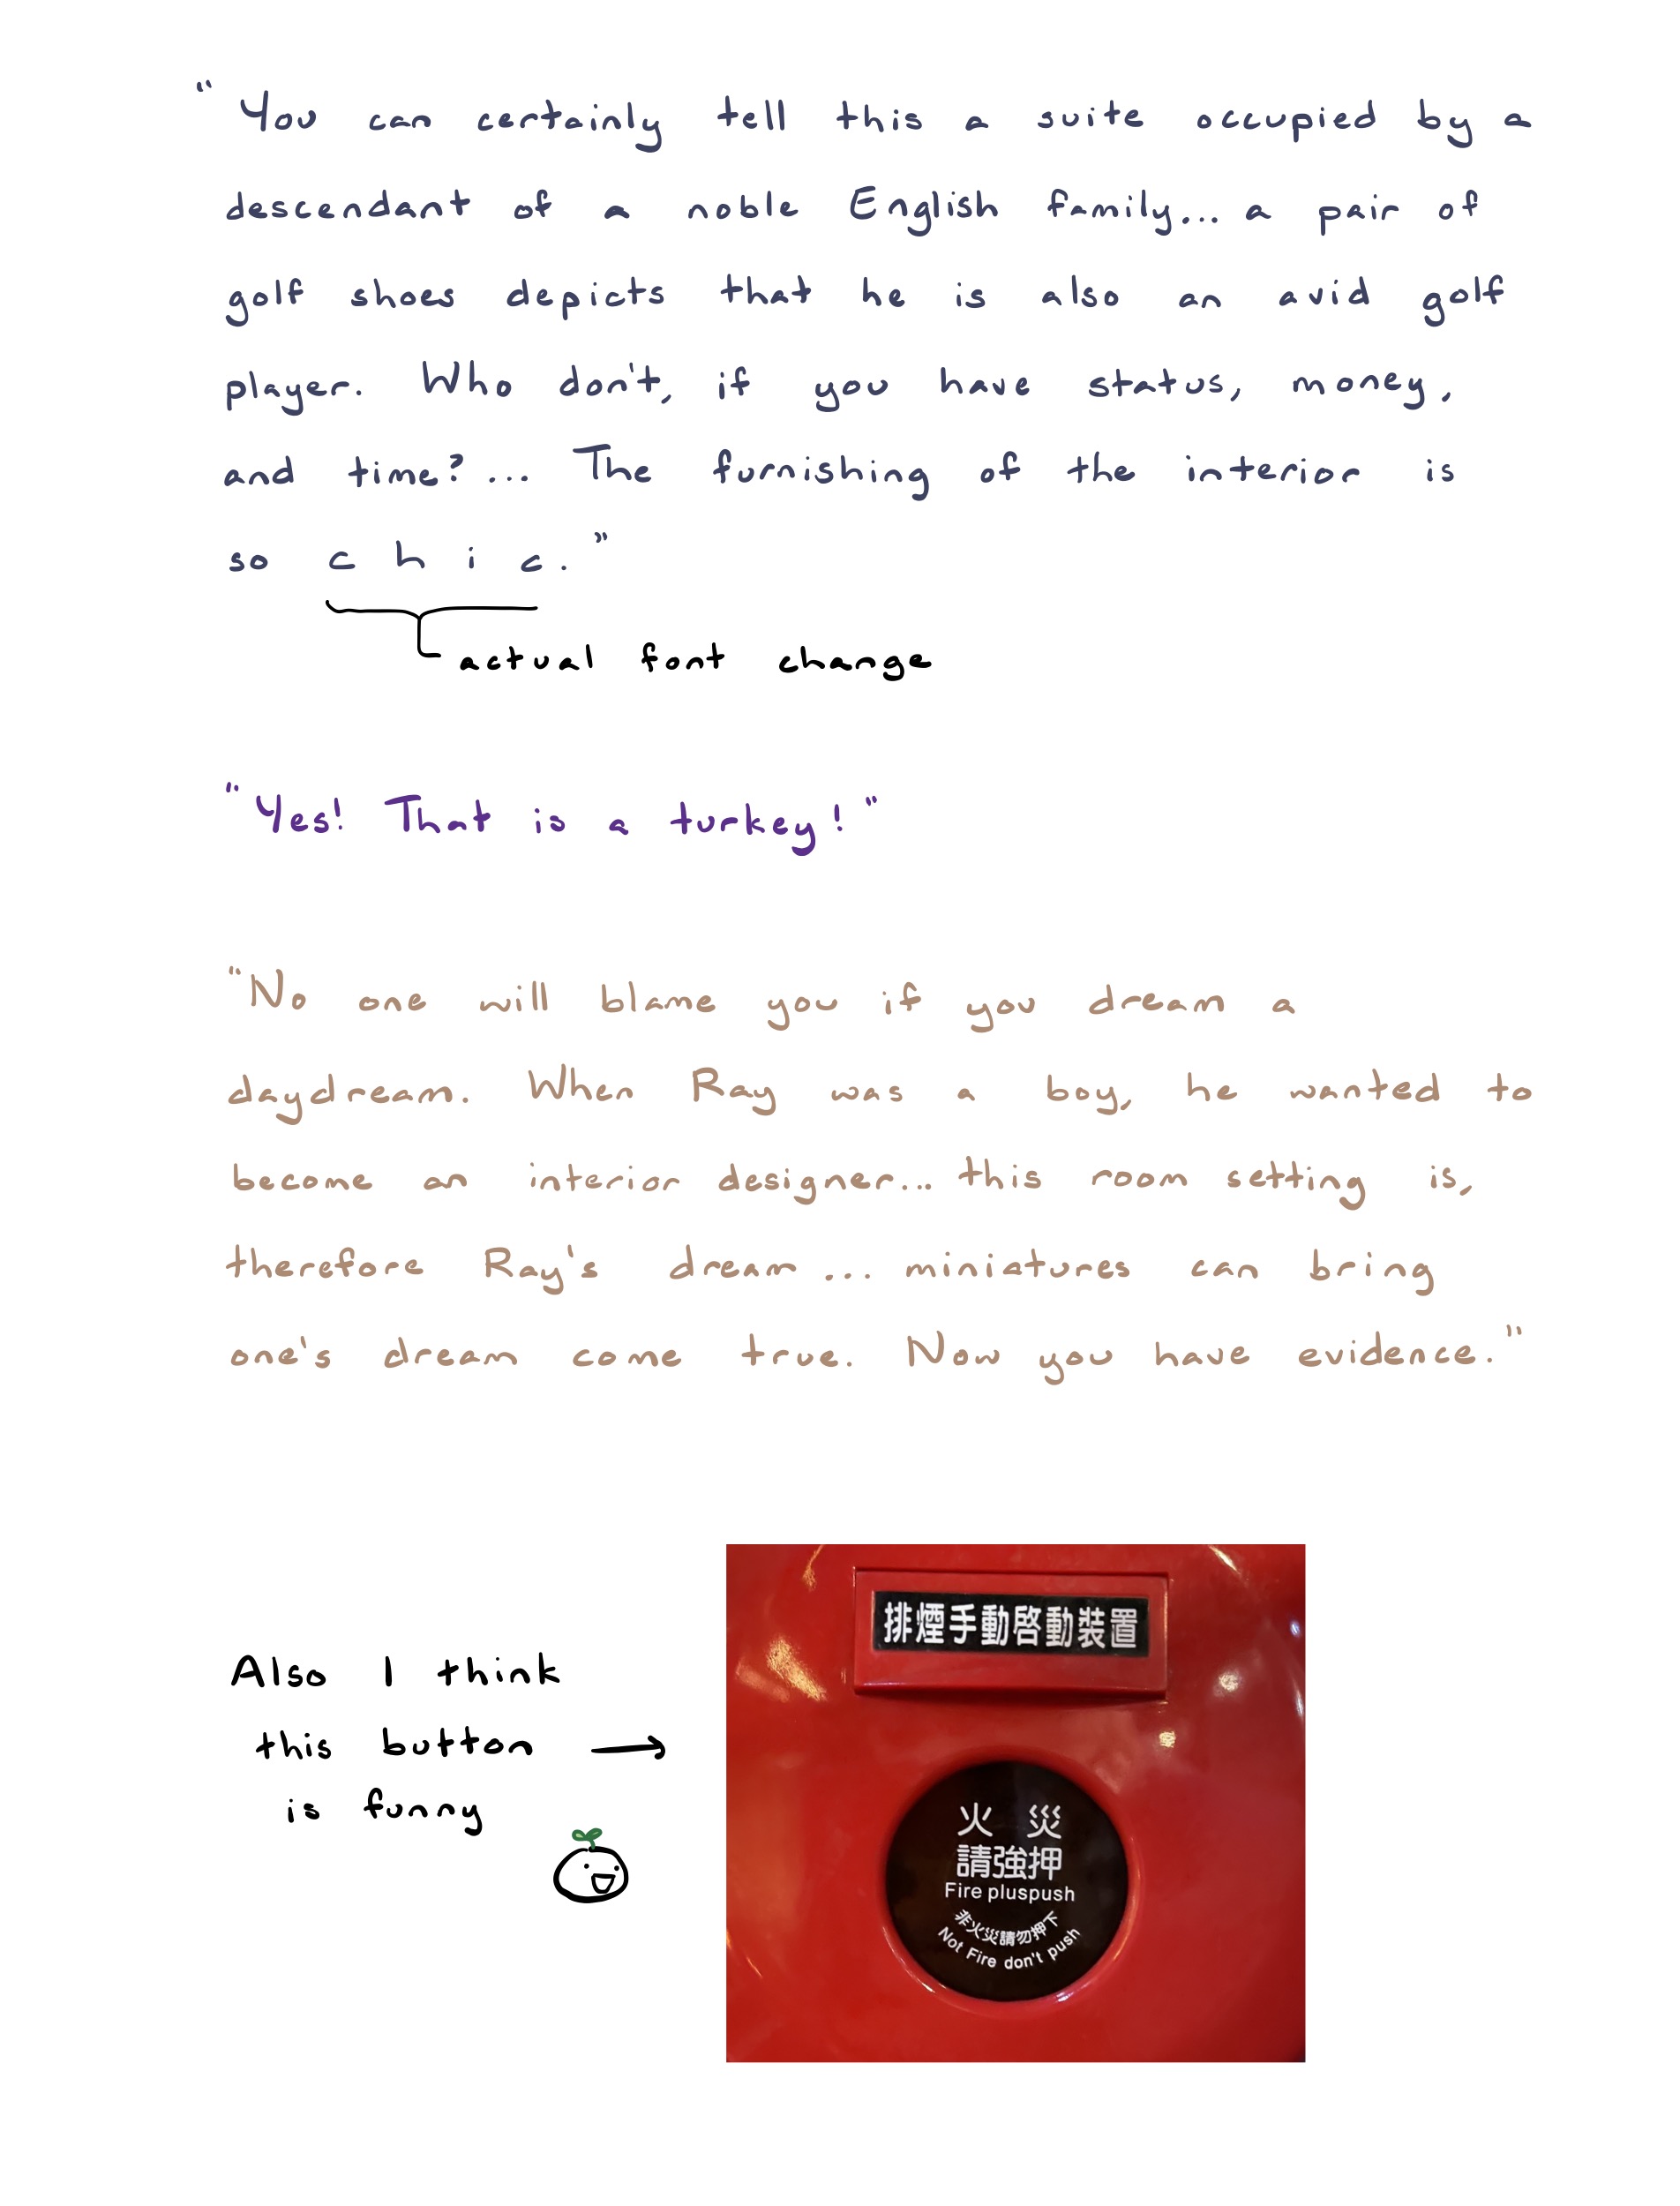 "You can certainly tell this a suite occupied by a
descendant of a noble English family... a pair of
golf shoes depicts that he is also an avid golf
player. Who don't, if you have status, money,
and time?... The furnishing of the interior is
so c h i c."
actual font change
"Yes! That is a turkey!"
"No one will blame you if you dream a
daydream. When Ray was a boy, he wanted to
become an interior designer... this room setting is,
therefore Ray's dream... miniatures can bring
one's dream come true. Now you have evidence."
Also I think
this button →
is funny
排煙手動啓動裝置
火 災
請強押
Fire pluspush
非火災請勿押下
Not Fire don't push